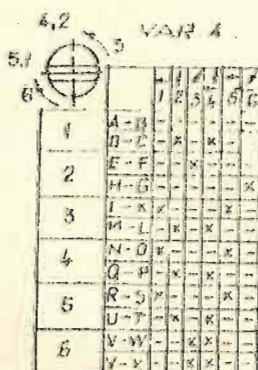 4,2
VAR 4
5,1 5
6
1 2 3 4 5 6
1 A-B
B-C - x - x - -
2 E-F - - x - - -
H-G - - - - - x
3 I-K x - - - x -
M-L - x - x - -
4 N-O x - - - x -
Q-P - x - x - -
5 R-S x - - - x -
U-T - x - x - -
6 V-W - - x x - -
Y-X - - x x - -